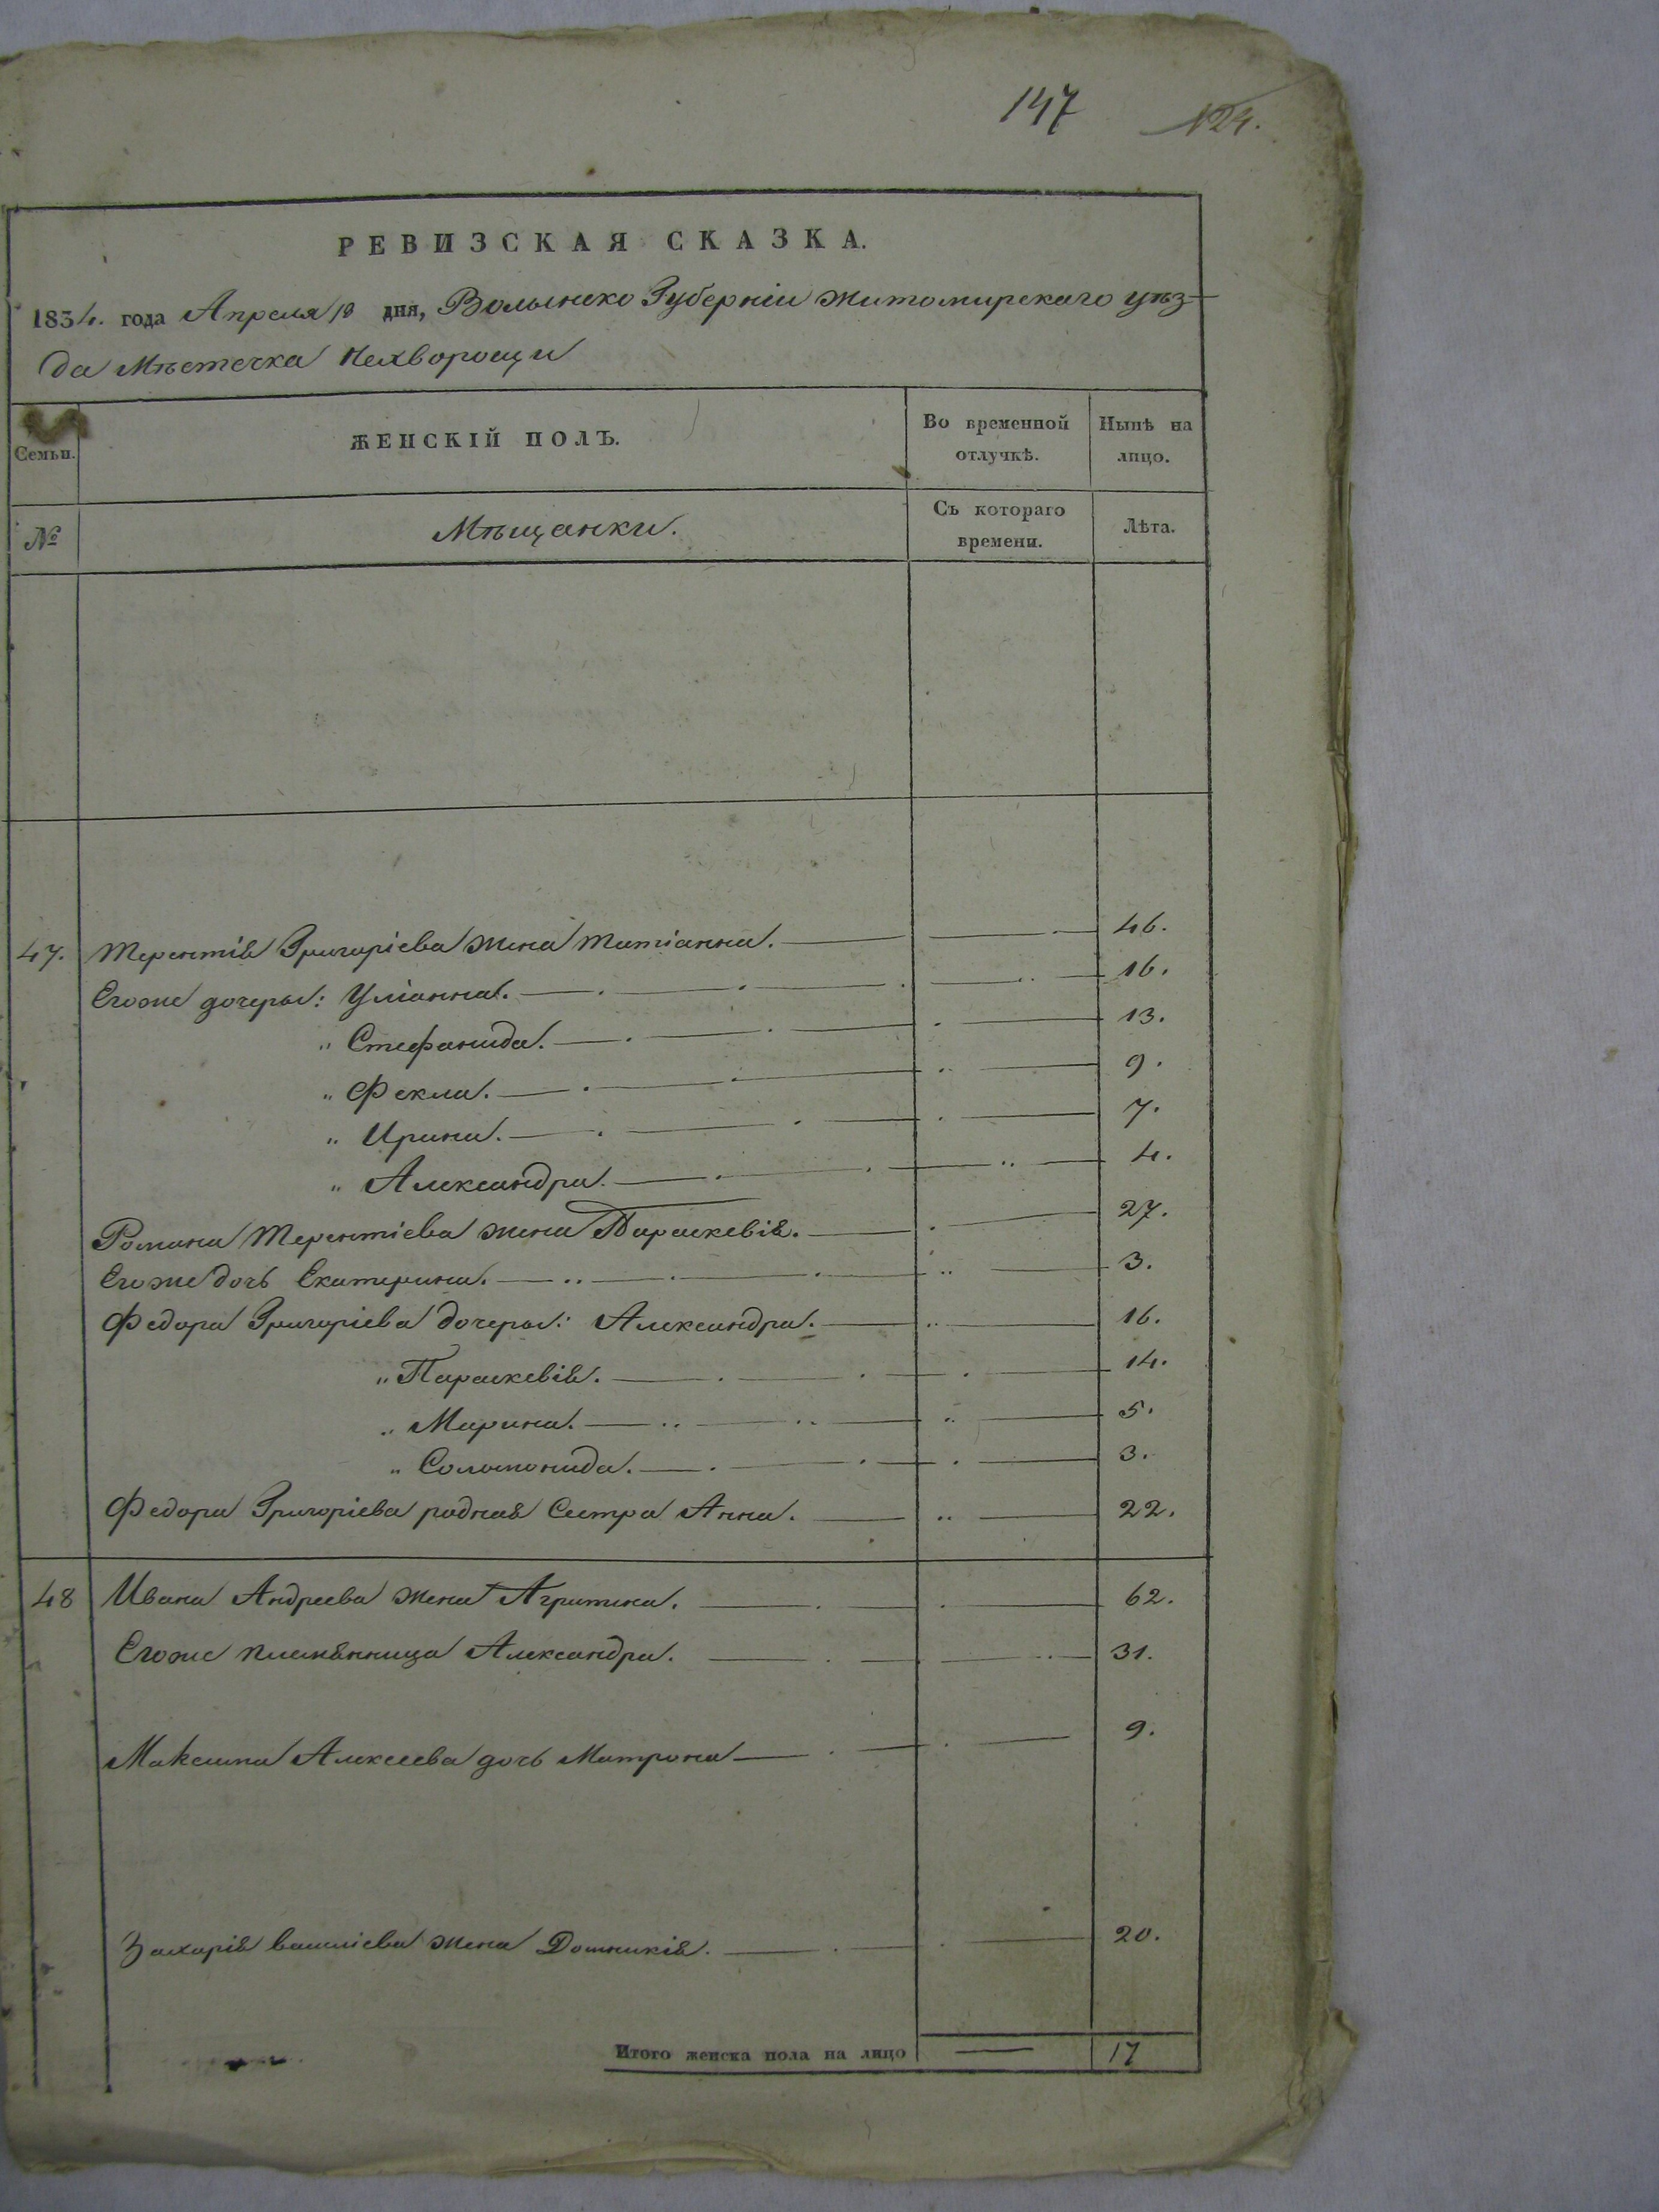 147 124.
РЕВИЗСКАЯ СКАЗКА.
1834. года Апреля 18 дня, Волынско Губерніи Житомирскаго уѣз-
да Мѣстечка Нехворощи
Семьи. ЖЕНСКІЙ ПОЛЪ. Во временной отлучкѣ. Нынѣ на лицо.
№ Мѣщанки. Съ котораго времени. Лѣта.
47. Терентія Григоріева жена Татіанна. 46.
Егоже дочеры: Уліанна. 16.
" Стефанида. 13.
" Фекла. 9.
" Ирина. 7.
" Александра. 4.
Романа Терентіева жена Параскевія. 27.
Егоже дочь Екатерина. 3.
Федора Григоріева дочеры: Александра. 16.
" Параскевія. 14.
" Марина. 5.
" Соломонида. 3.
Федора Григоріева родная Сестра Анна. 22.
48 Ивана Андреева жена Агрипина. 62.
Егоже племянница Александра. 31.
Максима Алексеева дочь Матрона 9.
Захарія василіева жена Домникія. 20.
Итого женска пола на лицо 17